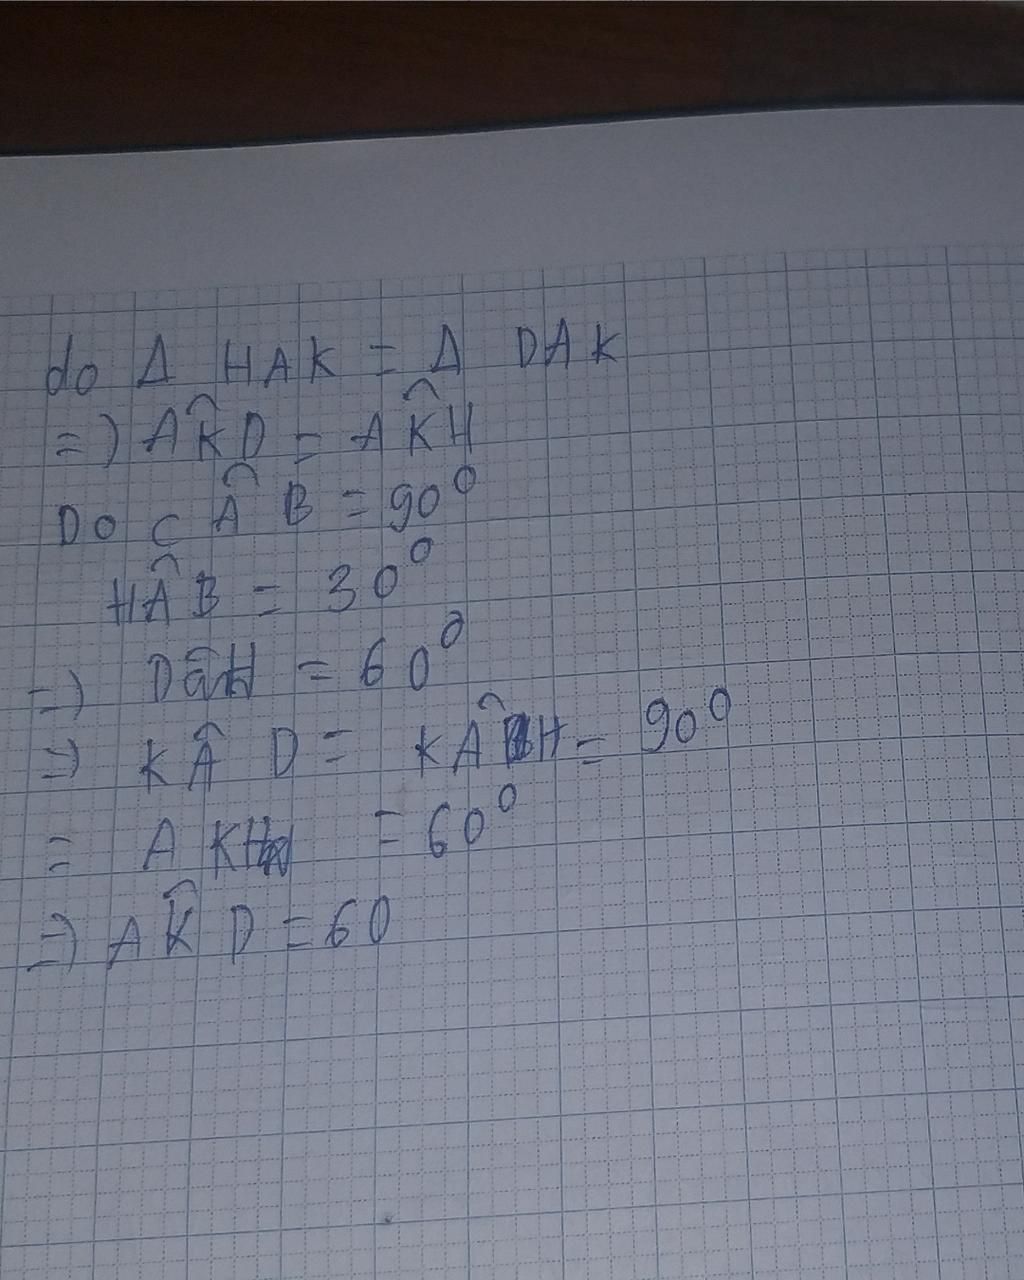 do Δ HAK = Δ DAK
=) AK̂D = AK̂H
Do CÂB = 90⁰
HÂB = 30⁰
=) DÂH = 60⁰
=) KÂD = KÂH = 90⁰
= AKH = 60⁰
=) AK̂D = 60